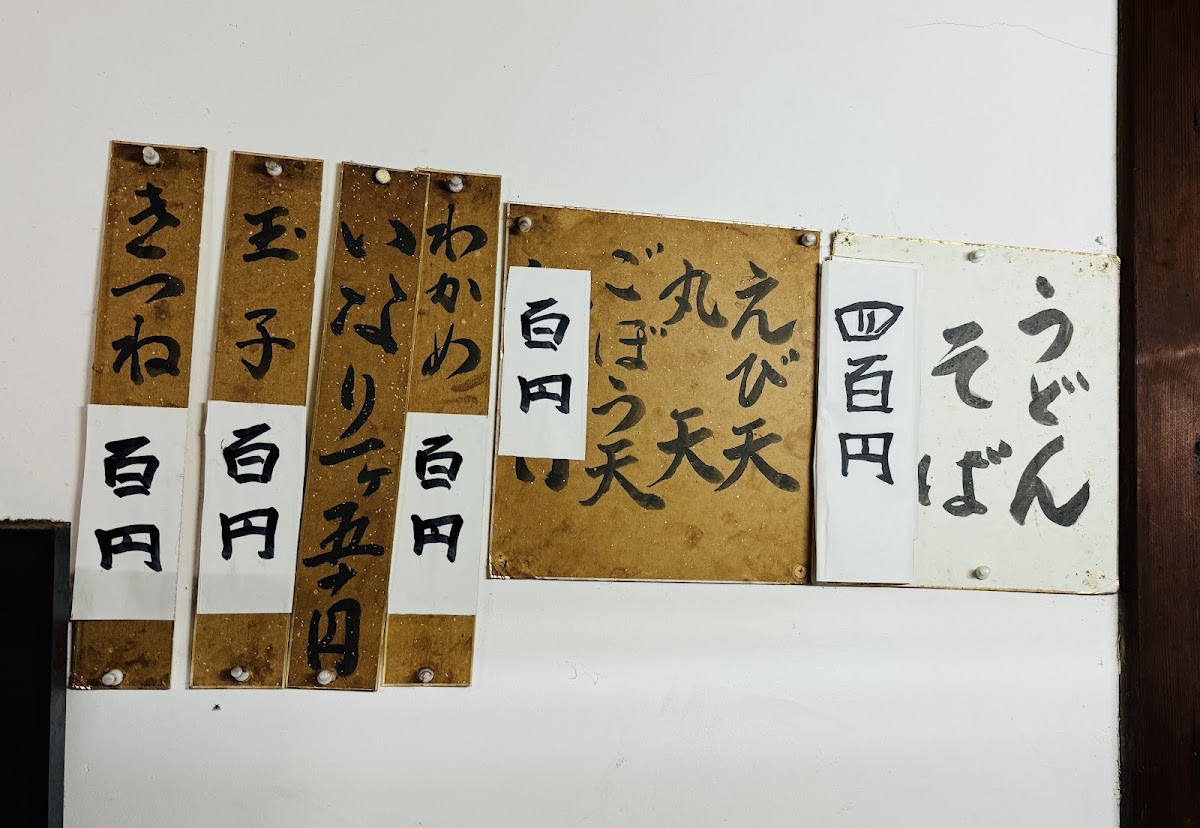 うどん
そば
四百円
えび天
丸天
ごぼう天
百円
わかめ
百円
いなり一ヶ五十円
玉子
百円
きつね
百円